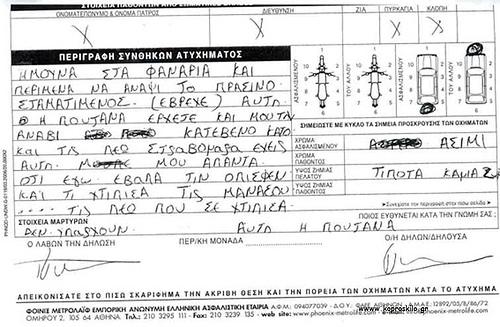 ΣΤΟΙΧΕΙΑ ΠΑΘΟΝΤΩΝ ΑΠΟ
ΟΝΟΜΑΤΕΠΩΝΥΜΟ & ΟΝΟΜΑ ΠΑΤΡΟΣ ΔΙΕΥΘΥΝΣΗ ΖΙΑ ΠΥΡΟΣ ΚΛΟΠΗ
X X X
ΠΕΡΙΓΡΑΦΗ ΣΥΝΘΗΚΩΝ ΑΤΥΧΗΜΑΤΟΣ
ΗΜΟΥΝΑ ΣΤΑ ΦΑΝΑΡΙΑ ΚΑΙ
ΠΕΡΙΜΕΝΑ ΝΑ ΑΝΑΨΙ ΤΟ ΠΡΑΣΙΝΟ
ΣΤΑΜΑΤΙΜΕΝΟΣ (ΕΒΡΕΧΕ) ΑΥΤΟ
Η ΠΟΥΤΑΝΑ ΕΡΧΕΤΕ ΚΑΙ ΜΟΥ ΤΗΝ
ΑΝΑΒΙ ΚΑΤΕΒΕΝΟ ΚΑΤΟ
ΚΑΙ ΤΙΣ ΛΕΟ ΣΤΡΑΒΟΜΑΡΑ ΕΧΕΙΣ
ΑΥΤΟ. ΜΟΥ ΑΠΑΝΤΑ
ΟΤΙ ΕΓΩ ΕΒΑΛΑ ΤΗΝ ΟΠΙΣΘΕΝ
ΚΑΙ ΤΙ ΧΤΙΠΙΣΑ ΤΙΣ ΜΑΝΑΣΟΥ
.... ΤΙΣ ΛΕΟ ΠΟΥ ΣΕ ΧΤΙΠΙΣΑ
ΑΣΦΑΛΙΣΜΕΝΟΥ
ΤΟΥ ΑΛΛΟΥ
ΑΣΦΑΛΙΣΜΕΝΟΥ
ΤΟΥ ΑΛΛΟΥ
ΣΗΜΕΙΩΣΤΕ ΜΕ ΚΥΚΛΟ ΤΑ ΣΗΜΕΙΑ ΠΡΟΣΚΡΟΥΣΗΣ ΤΩΝ ΟΧΗΜΑΤΩΝ
ΧΡΩΜΑ ΑΣΦΑΛΙΣΜΕΝΟΥ ΑΣΙΜΙ
ΧΡΩΜΑ ΠΑΘΟΝΤΟΣ
ΥΨΟΣ ΖΗΜΙΑΣ ΠΕΛΑΤΟΥ ΤΙΠΟΤΑ ΚΑΜΙΑ
ΥΨΟΣ ΖΗΜΙΑΣ ΠΑΘΟΝΤΟΣ
Συνεχίστε την περιγραφή στην πίσω σελίδα
ΣΤΟΙΧΕΙΑ ΜΑΡΤΥΡΩΝ ΠΟΙΟΣ ΕΥΘΥΝΕΤΑΙ ΚΑΤΑ ΤΗ ΓΝΩΜΗ ΣΑΣ :
ΔΕΝ ΥΠΑΡΧΟΥΝ ΑΥΤΟ Η ΠΟΥΤΑΝΑ
Ο ΛΑΒΩΝ ΤΗΝ ΔΗΛΩΣΗ ΠΕΡ/ΚΗ ΜΟΝΑΔΑ Ο/Η ΔΗΛΩΝ/ΟΥΣΑ
ΑΠΕΙΚΟΝΙΣΑΤΕ ΣΤΟ ΠΙΣΩ ΣΚΑΡΙΦΗΜΑ ΤΗΝ ΑΚΡΙΒΗ ΘΕΣΗ ΚΑΙ ΤΗΝ ΠΟΡΕΙΑ ΤΩΝ ΟΧΗΜΑΤΩΝ ΚΑΤΑ ΤΟ ΑΤΥΧΗΜΑ
ΦΟΙΝΙΞ ΜΕΤΡΟΛΑΪΦ ΕΜΠΟΡΙΚΗ ΑΝΩΝΥΜΗ ΕΛΛΗΝΙΚΗ ΑΣΦΑΛΙΣΤΙΚΗ ΕΤΑΙΡΙΑ Α.Φ.Μ.: 094077039 - Δ.Ο.Υ.: ΦΑΕΕ ΑΘΗΝΩΝ - Α.Μ.Α.Ε.: 12892/05/Β/86/72
ΟΜΗΡΟΥ 2, 105 64 ΑΘΗΝΑ Tel.: 210 3295 111 - Fax: 210 3239 135 - web site: http://www.phoenix-metrolife.com